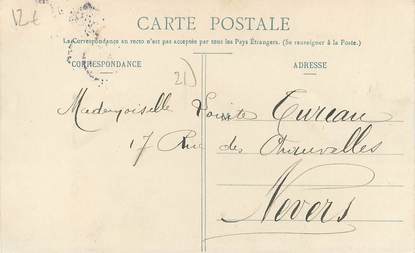 12€
CARTE POSTALE
La Correspondance au recto n'est pas acceptée par tous les Pays Étrangers. (Se renseigner à la Poste.)
CORRESPONDANCE
ADRESSE
21)
Mademoiselle Louise Tureau
17 Rue des Chauvelles
Nevers